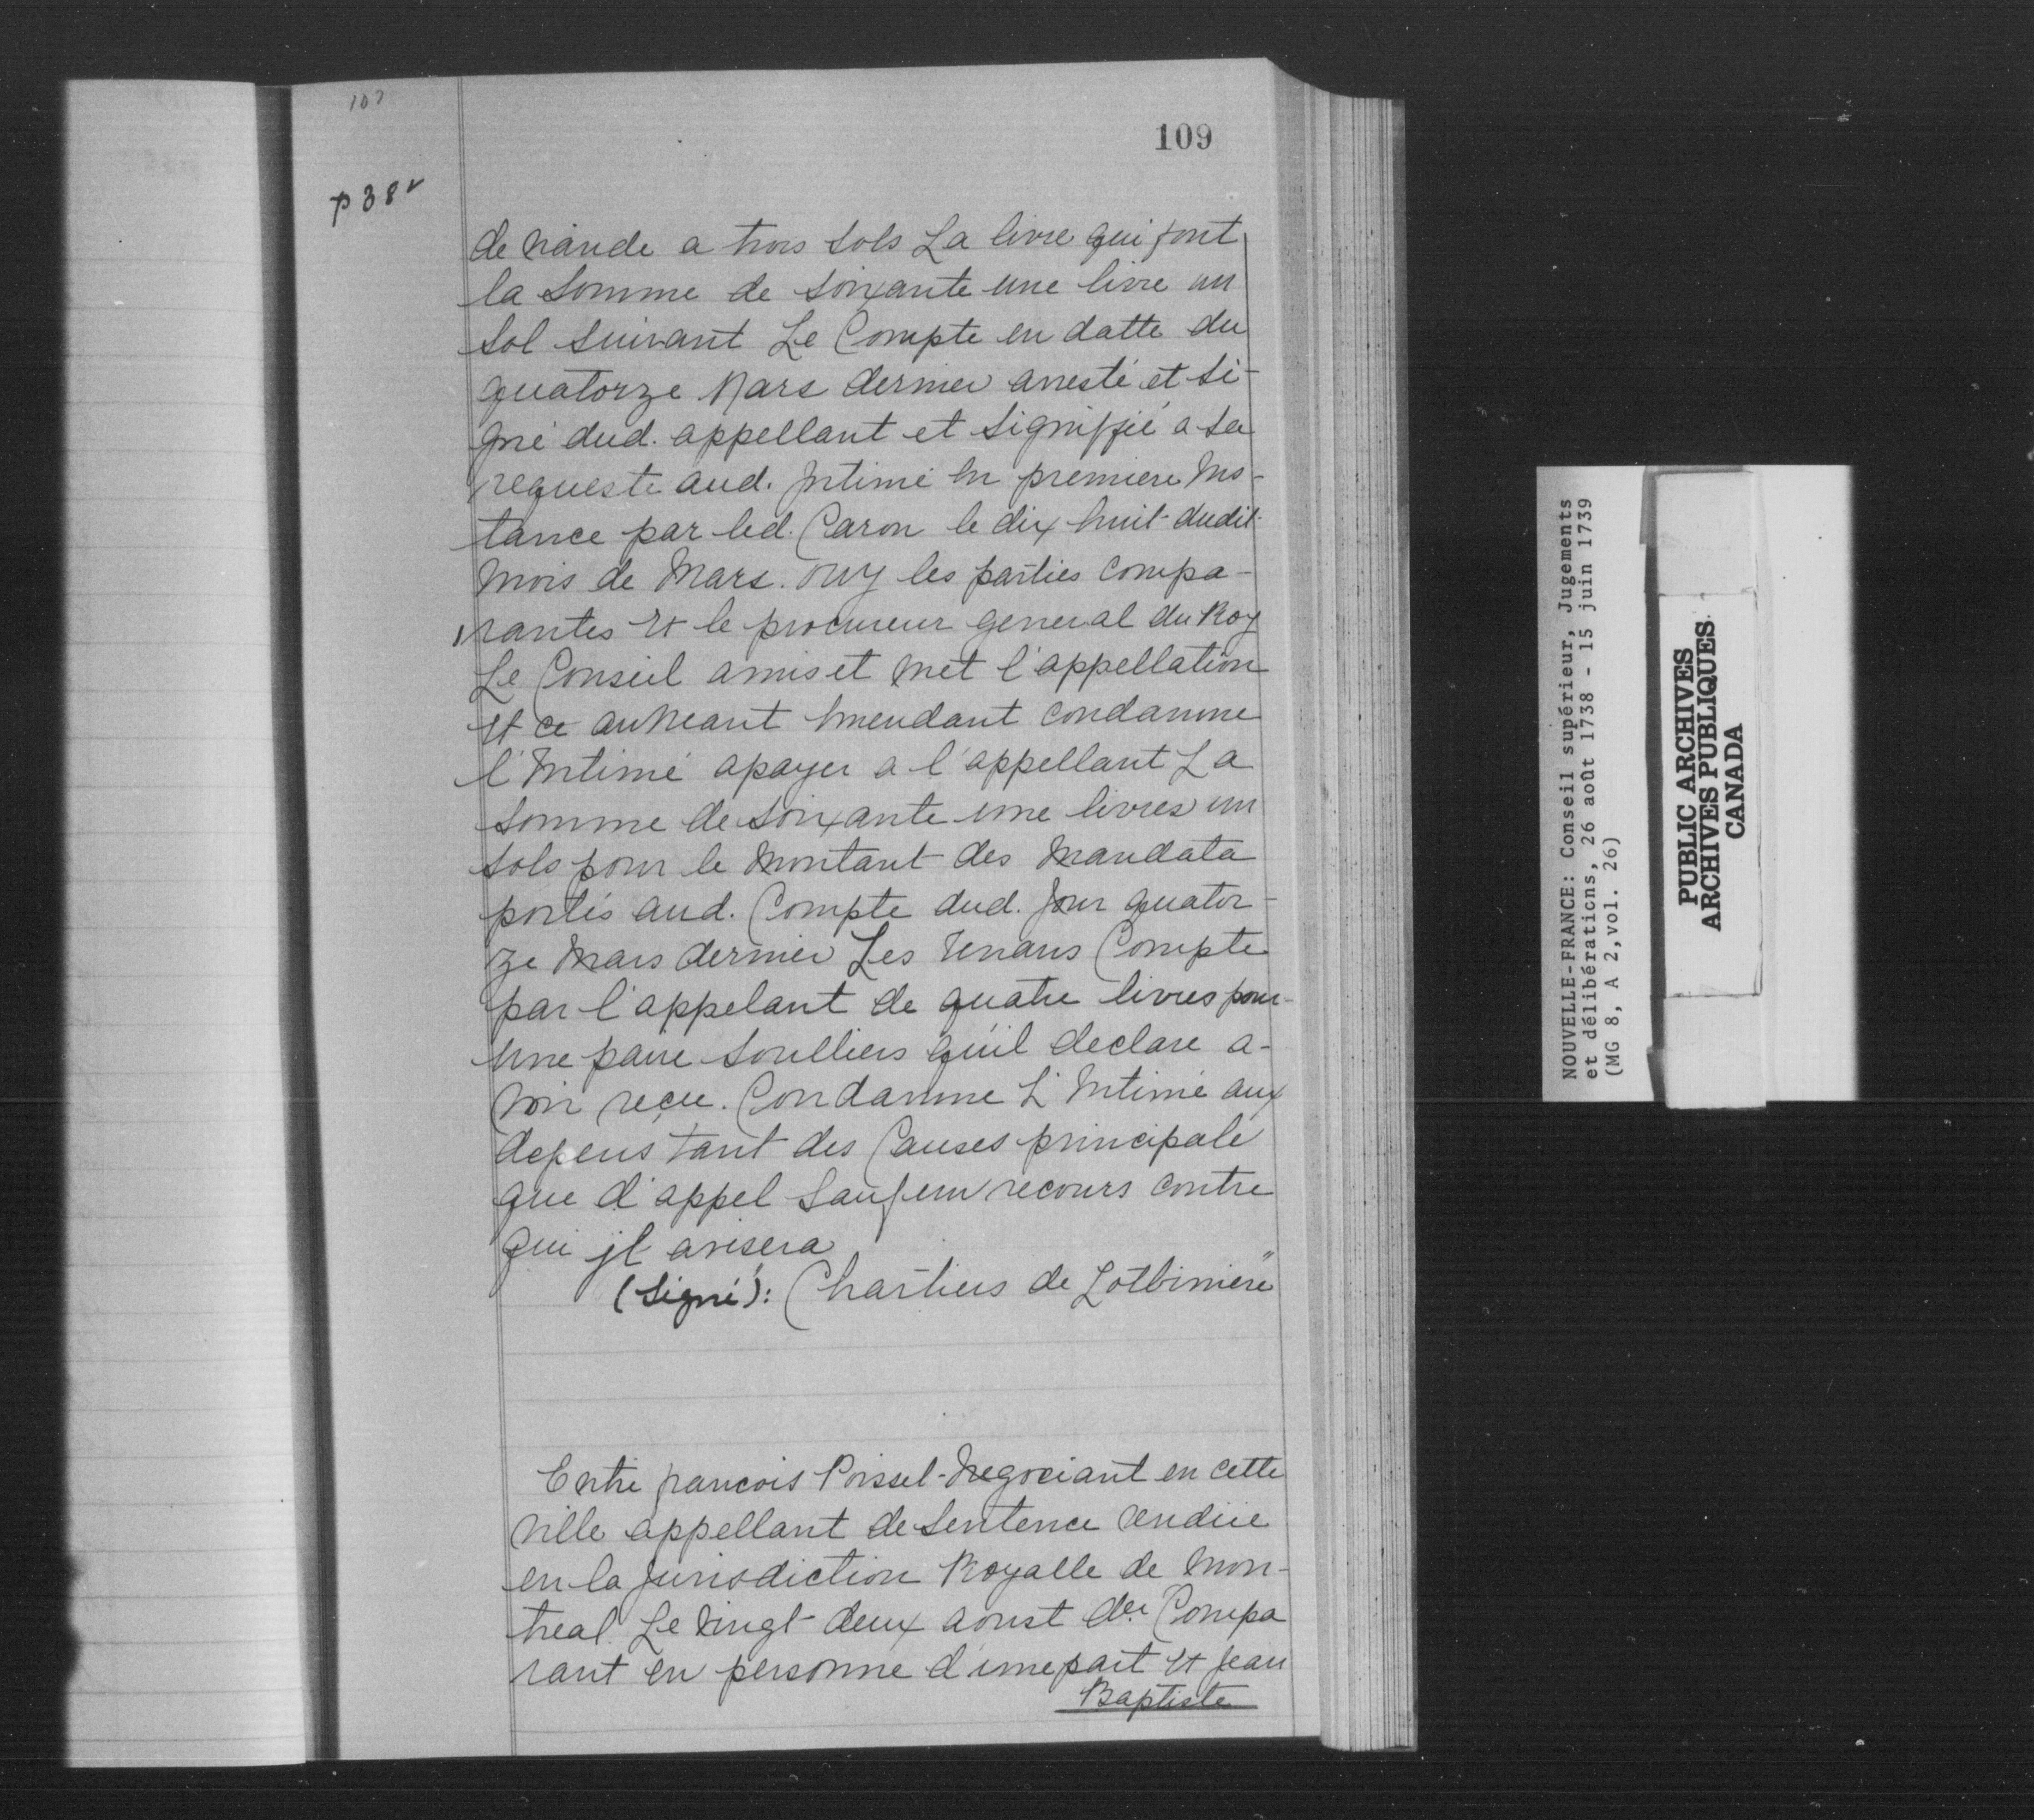 107
109
p 38 v
de viande a trois sols La livre qui font
la Somme de soixante une livre un
sol suivant Le Compte en datte du
quatorze Mars dernier aresté et Si-
gné dud. appellant et signiffié a sa
requeste aud. Intimé En premiere Ins-
tance par led. Caron le dix huit dudit
Mois de Mars. Ouy les parties Compa-
rantes Et le procureur general du Roy
Le Conseil amis et met l'appellation
Et ce au Neant Emendant condamne
l'Intimé apayer a l'appellant La
Somme de soixante une livres un
sols pour le Montant des Mandata
portés aud. Compte dud. Jour quator-
ze Mars dernier Les Tenans Compte
par l'appelant de quatre livres pour
Une paire soulliers qu'il declare a-
voir reçue. Condamne L'Intimé aux
depens tant des Causes principale
que d'appel Saufsnu recours contre
qui jl avisera
(signé): Chartiers de Lotbiniere"
Entre francois Poissel-Negociant en cette
Ville appellant de Sentence Rendüe
en la Jurisdiction Royalle de Mon-
treal Le vingt-deux aoust der Compa
rant En personne d'une part Et Jean
Baptiste
NOUVELLE-FRANCE: Conseil supérieur, Jugements
et délibérations, 26 août 1738 - 15 juin 1739
(MG 8, A 2,vol. 26)
PUBLIC ARCHIVES
ARCHIVES PUBLIQUES
CANADA